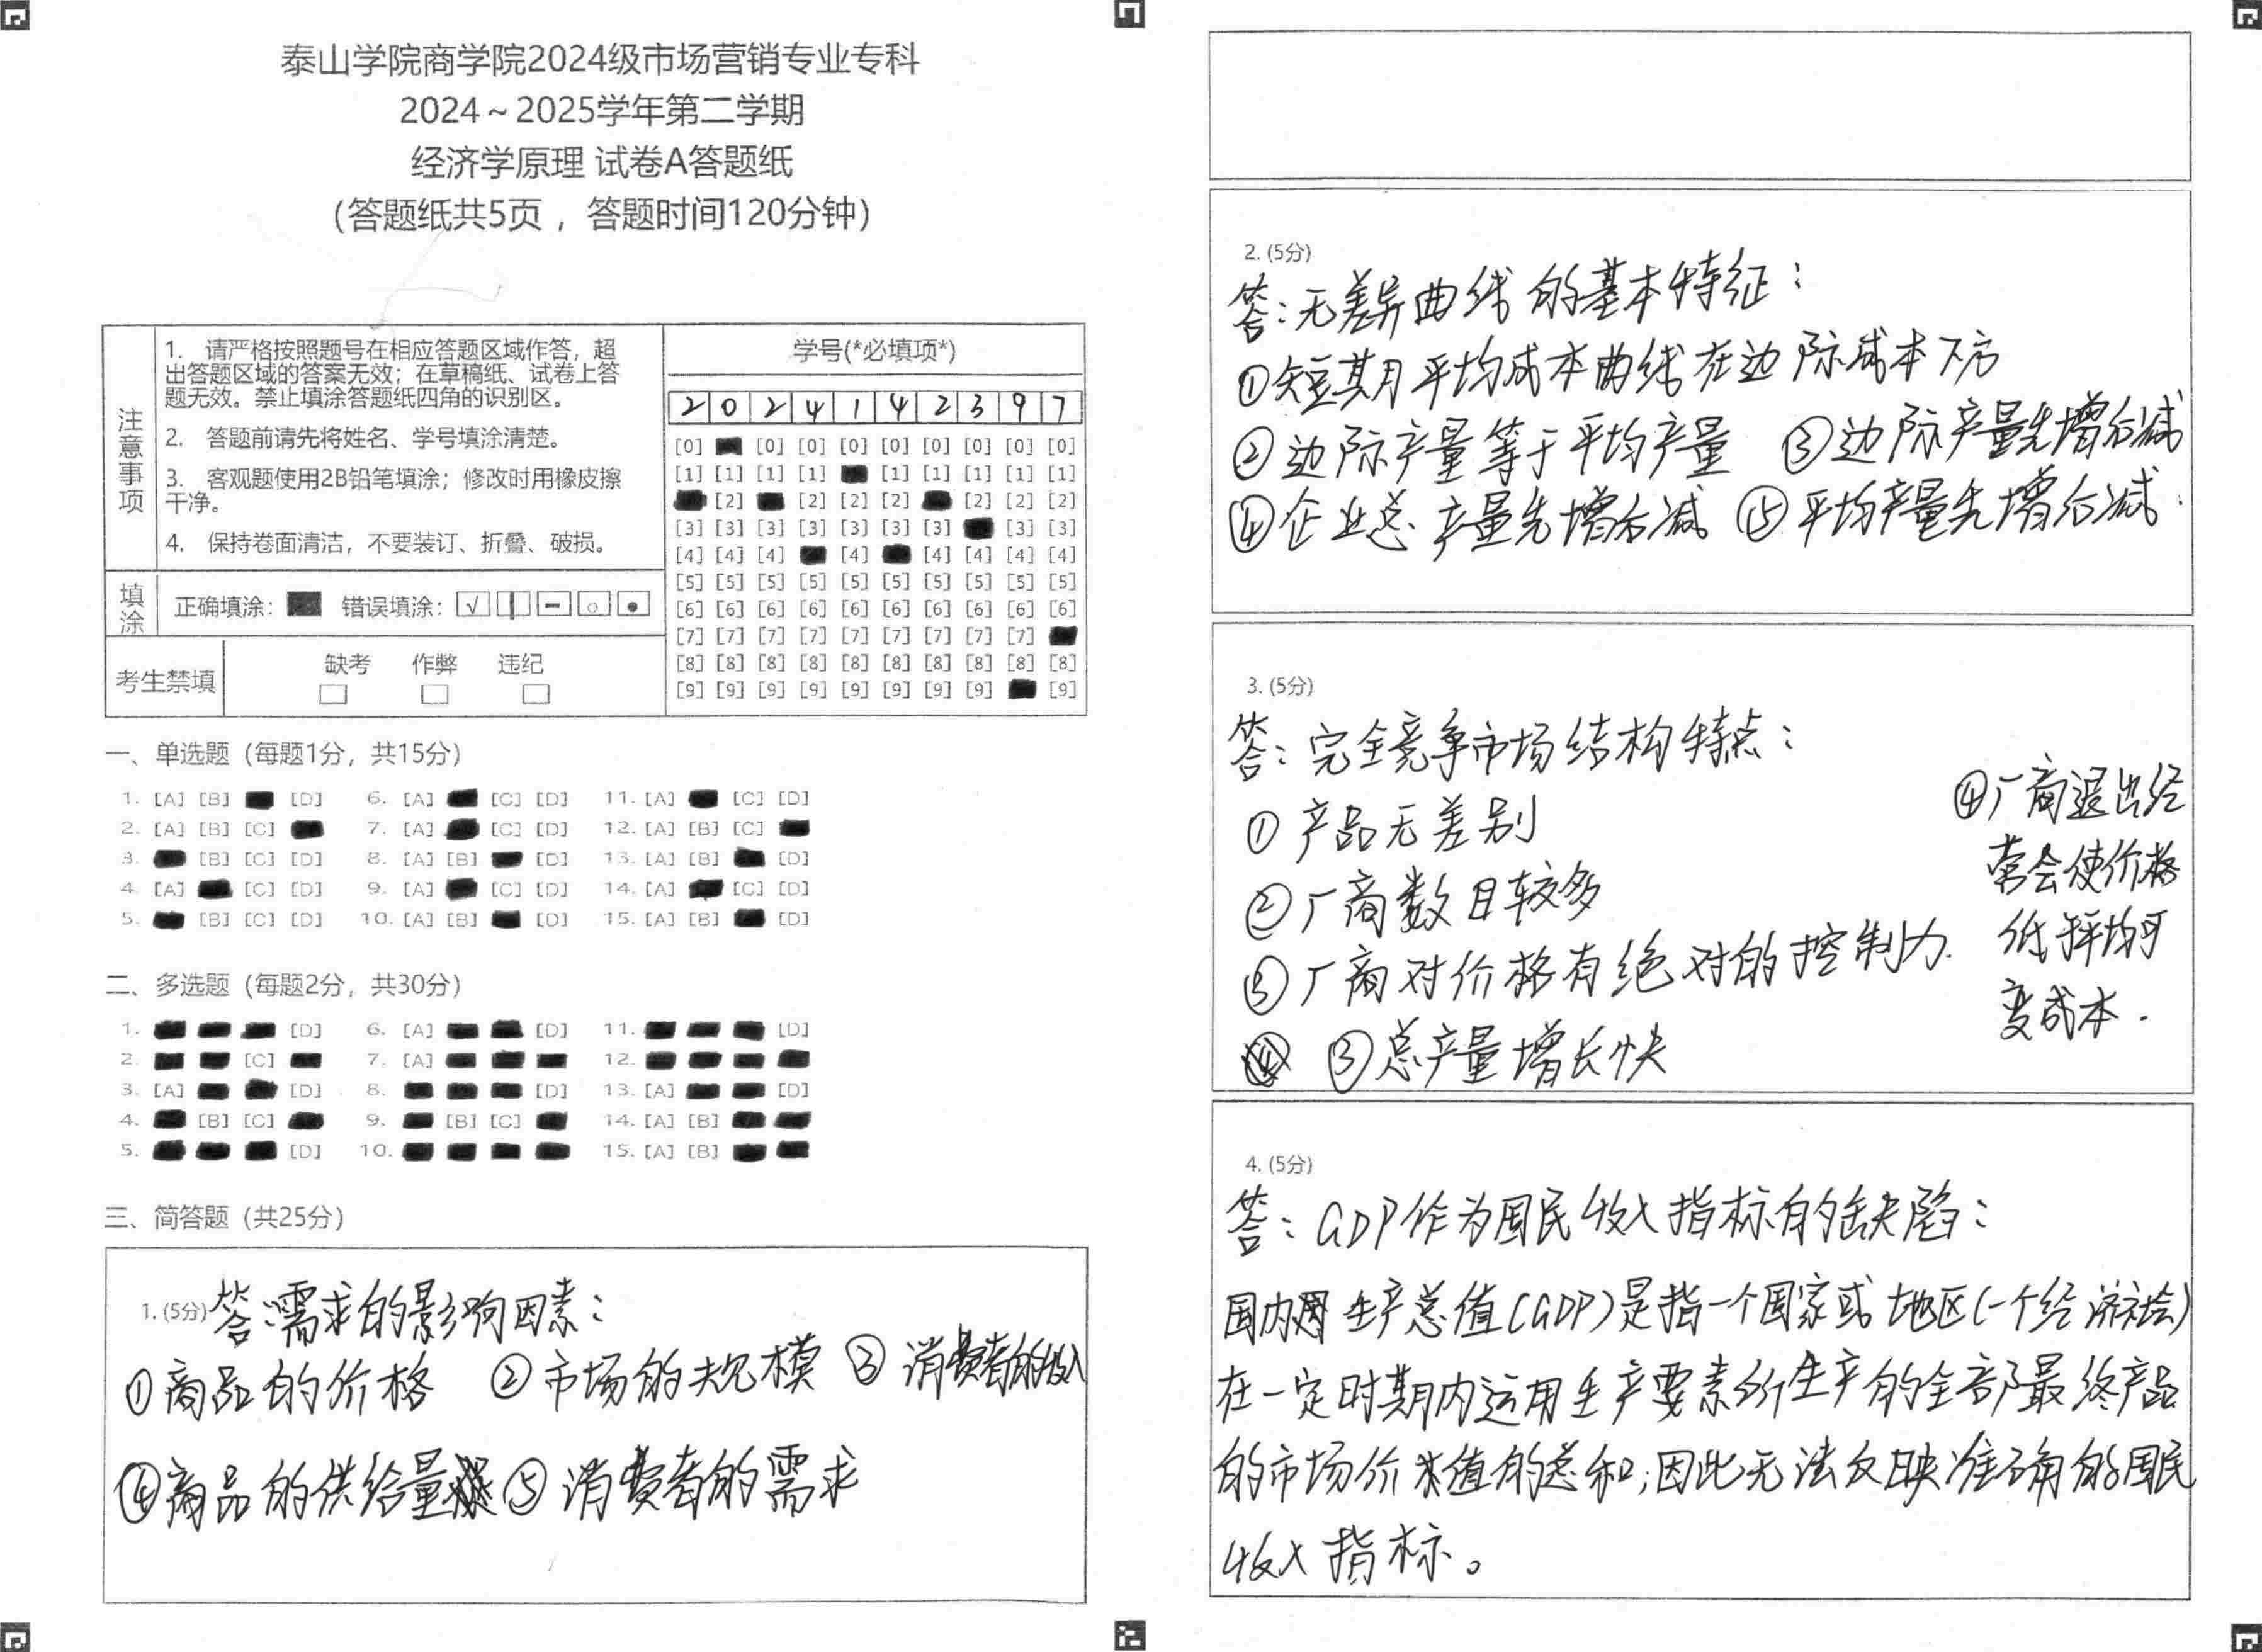 泰山学院商学院2024级市场营销专业专科
2024～2025学年第二学期
经济学原理 试卷A答题纸
（答题纸共5页，答题时间120分钟）
注意事项
1. 请严格按照题号在相应答题区域作答，超
出答题区域的答案无效；在草稿纸、试卷上答
题无效。禁止填涂答题纸四角的识别区。
2. 答题前请先将姓名、学号填涂清楚。
3. 客观题使用2B铅笔填涂；修改时用橡皮擦
干净。
4. 保持卷面清洁，不要装订、折叠、破损。
填涂
正确填涂： 错误填涂：
考生禁填
缺考 作弊 违纪
学号(*必填项*)
2 0 2 4 1 4 2 3 9 7
[0] [0] [0] [0] [0] [0] [0] [0] [0]
[1] [1] [1] [1] [1] [1] [1] [1] [1]
[2] [2] [2] [2] [2] [2] [2]
[3] [3] [3] [3] [3] [3] [3] [3] [3]
[4] [4] [4] [4] [4] [4] [4] [4]
[5] [5] [5] [5] [5] [5] [5] [5] [5] [5]
[6] [6] [6] [6] [6] [6] [6] [6] [6] [6]
[7] [7] [7] [7] [7] [7] [7] [7] [7]
[8] [8] [8] [8] [8] [8] [8] [8] [8] [8]
[9] [9] [9] [9] [9] [9] [9] [9] [9]
一、单选题（每题1分，共15分）
1. [A] [B] [D] 6. [A] [C] [D] 11. [A] [C] [D]
2. [A] [B] [C] 7. [A] [C] [D] 12. [A] [B] [C]
3. [B] [C] [D] 8. [A] [B] [D] 13. [A] [B] [D]
4. [A] [C] [D] 9. [A] [C] [D] 14. [A] [C] [D]
5. [B] [C] [D] 10. [A] [B] [D] 15. [A] [B] [D]
二、多选题（每题2分，共30分）
1. [D] 6. [A] [D] 11. [D]
2. [C] 7. [A] 12.
3. [A] [D] 8. [D] 13. [A] [D]
4. [B] [C] 9. [B] [C] 14. [A] [B]
5. [D] 10. 15. [A] [B]
三、简答题（共25分）
1. (5分) 答：需求的影响因素：
①商品的价格 ②市场的规模 ③消费者的收入
④商品的供给量 ⑤消费者的需求
2. (5分)
答：无差异曲线的基本特征：
①短期平均成本曲线在边际成本下方
②边际产量等于平均产量 ③边际产量先增后减
④企业总产量先增后减 ⑤平均产量先增后减.
3. (5分)
答：完全竞争市场结构特点：
①产品无差别
②厂商数目较多
⑤厂商对价格有绝对的控制力.
③总产量增长快
④厂商退出经
营会使价格
低于平均可
变成本.
4. (5分)
答：GDP作为国民收入指标有的缺陷：
国内生产总值(GDP)是指一个国家或地区(一个经济社会)
在一定时期内运用生产要素所生产的全部最终产品
的市场价值的总和;因此无法反映准确的国民
收入指标。